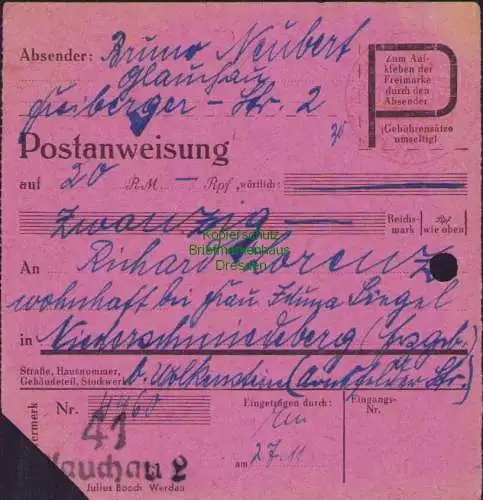 Absender: Bruno Neubert
Glauchau
Freiberger - Str. 2
Zum Auf-
kleben der
Freimarke
durch den
Absender
P
(Gebührensätze
umseitig)
30
Postanweisung
auf 20 RM — Rpf, wörtlich:
zwanzig —
Reichs-
mark
Rpf
wie oben
Kopierschutz
Briefmarkenhaus
Dresden
An Richard Lorenz
wohnhaft bei Frau Irma Siegel
in Niederschmiedeberg (Erzgeb.)
Straße, Hausnummer,
Gebäudeteil, Stockwerk
b. Wolkenstein (Arnsfelder Str.)
Nr. 4460
Eingetragen durch:
Eingangs-
Nr.
41
lauchau 2
am 27.11
Julius Booch Werdau